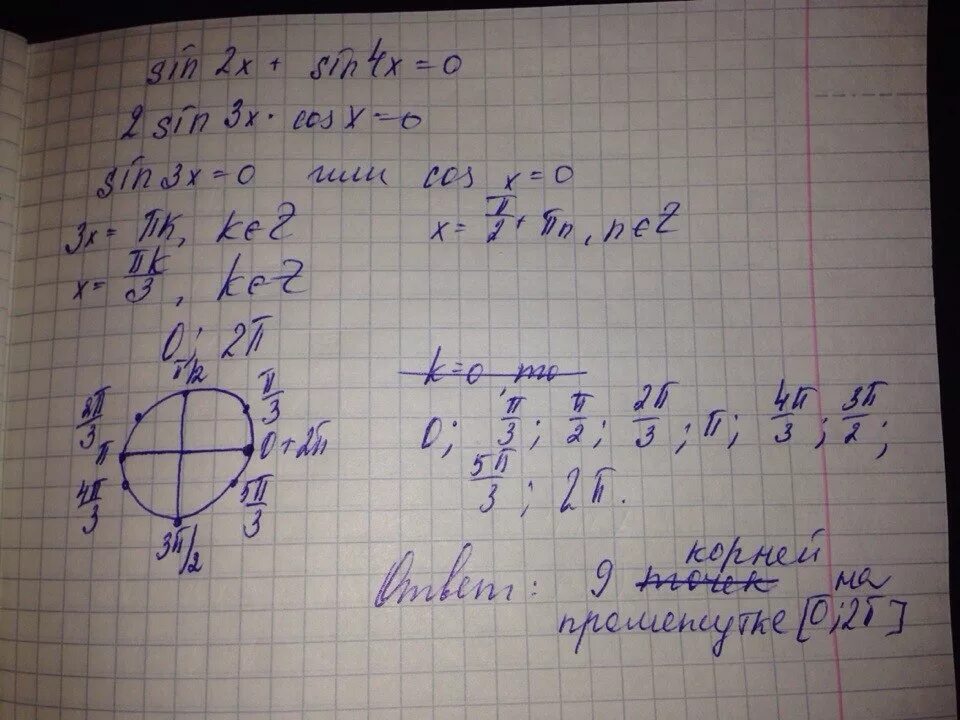 sin 2x + sin 4x = 0
2 sin 3x · cos x = 0
sin 3x = 0 или cos x = 0
3x = πk, k∈Z x = π/2 + πn, n∈Z
x = πk/3, k∈Z
0; 2π
k=0 то
π/2
π/3
2π/3
π
0+2π
4π/3
5π/3
3π/2
0; π/3; π/2; 2π/3; π; 4π/3; 3π/2;
5π/3; 2π.
корней
Ответ: 9 точек на
промежутке [0;2π]